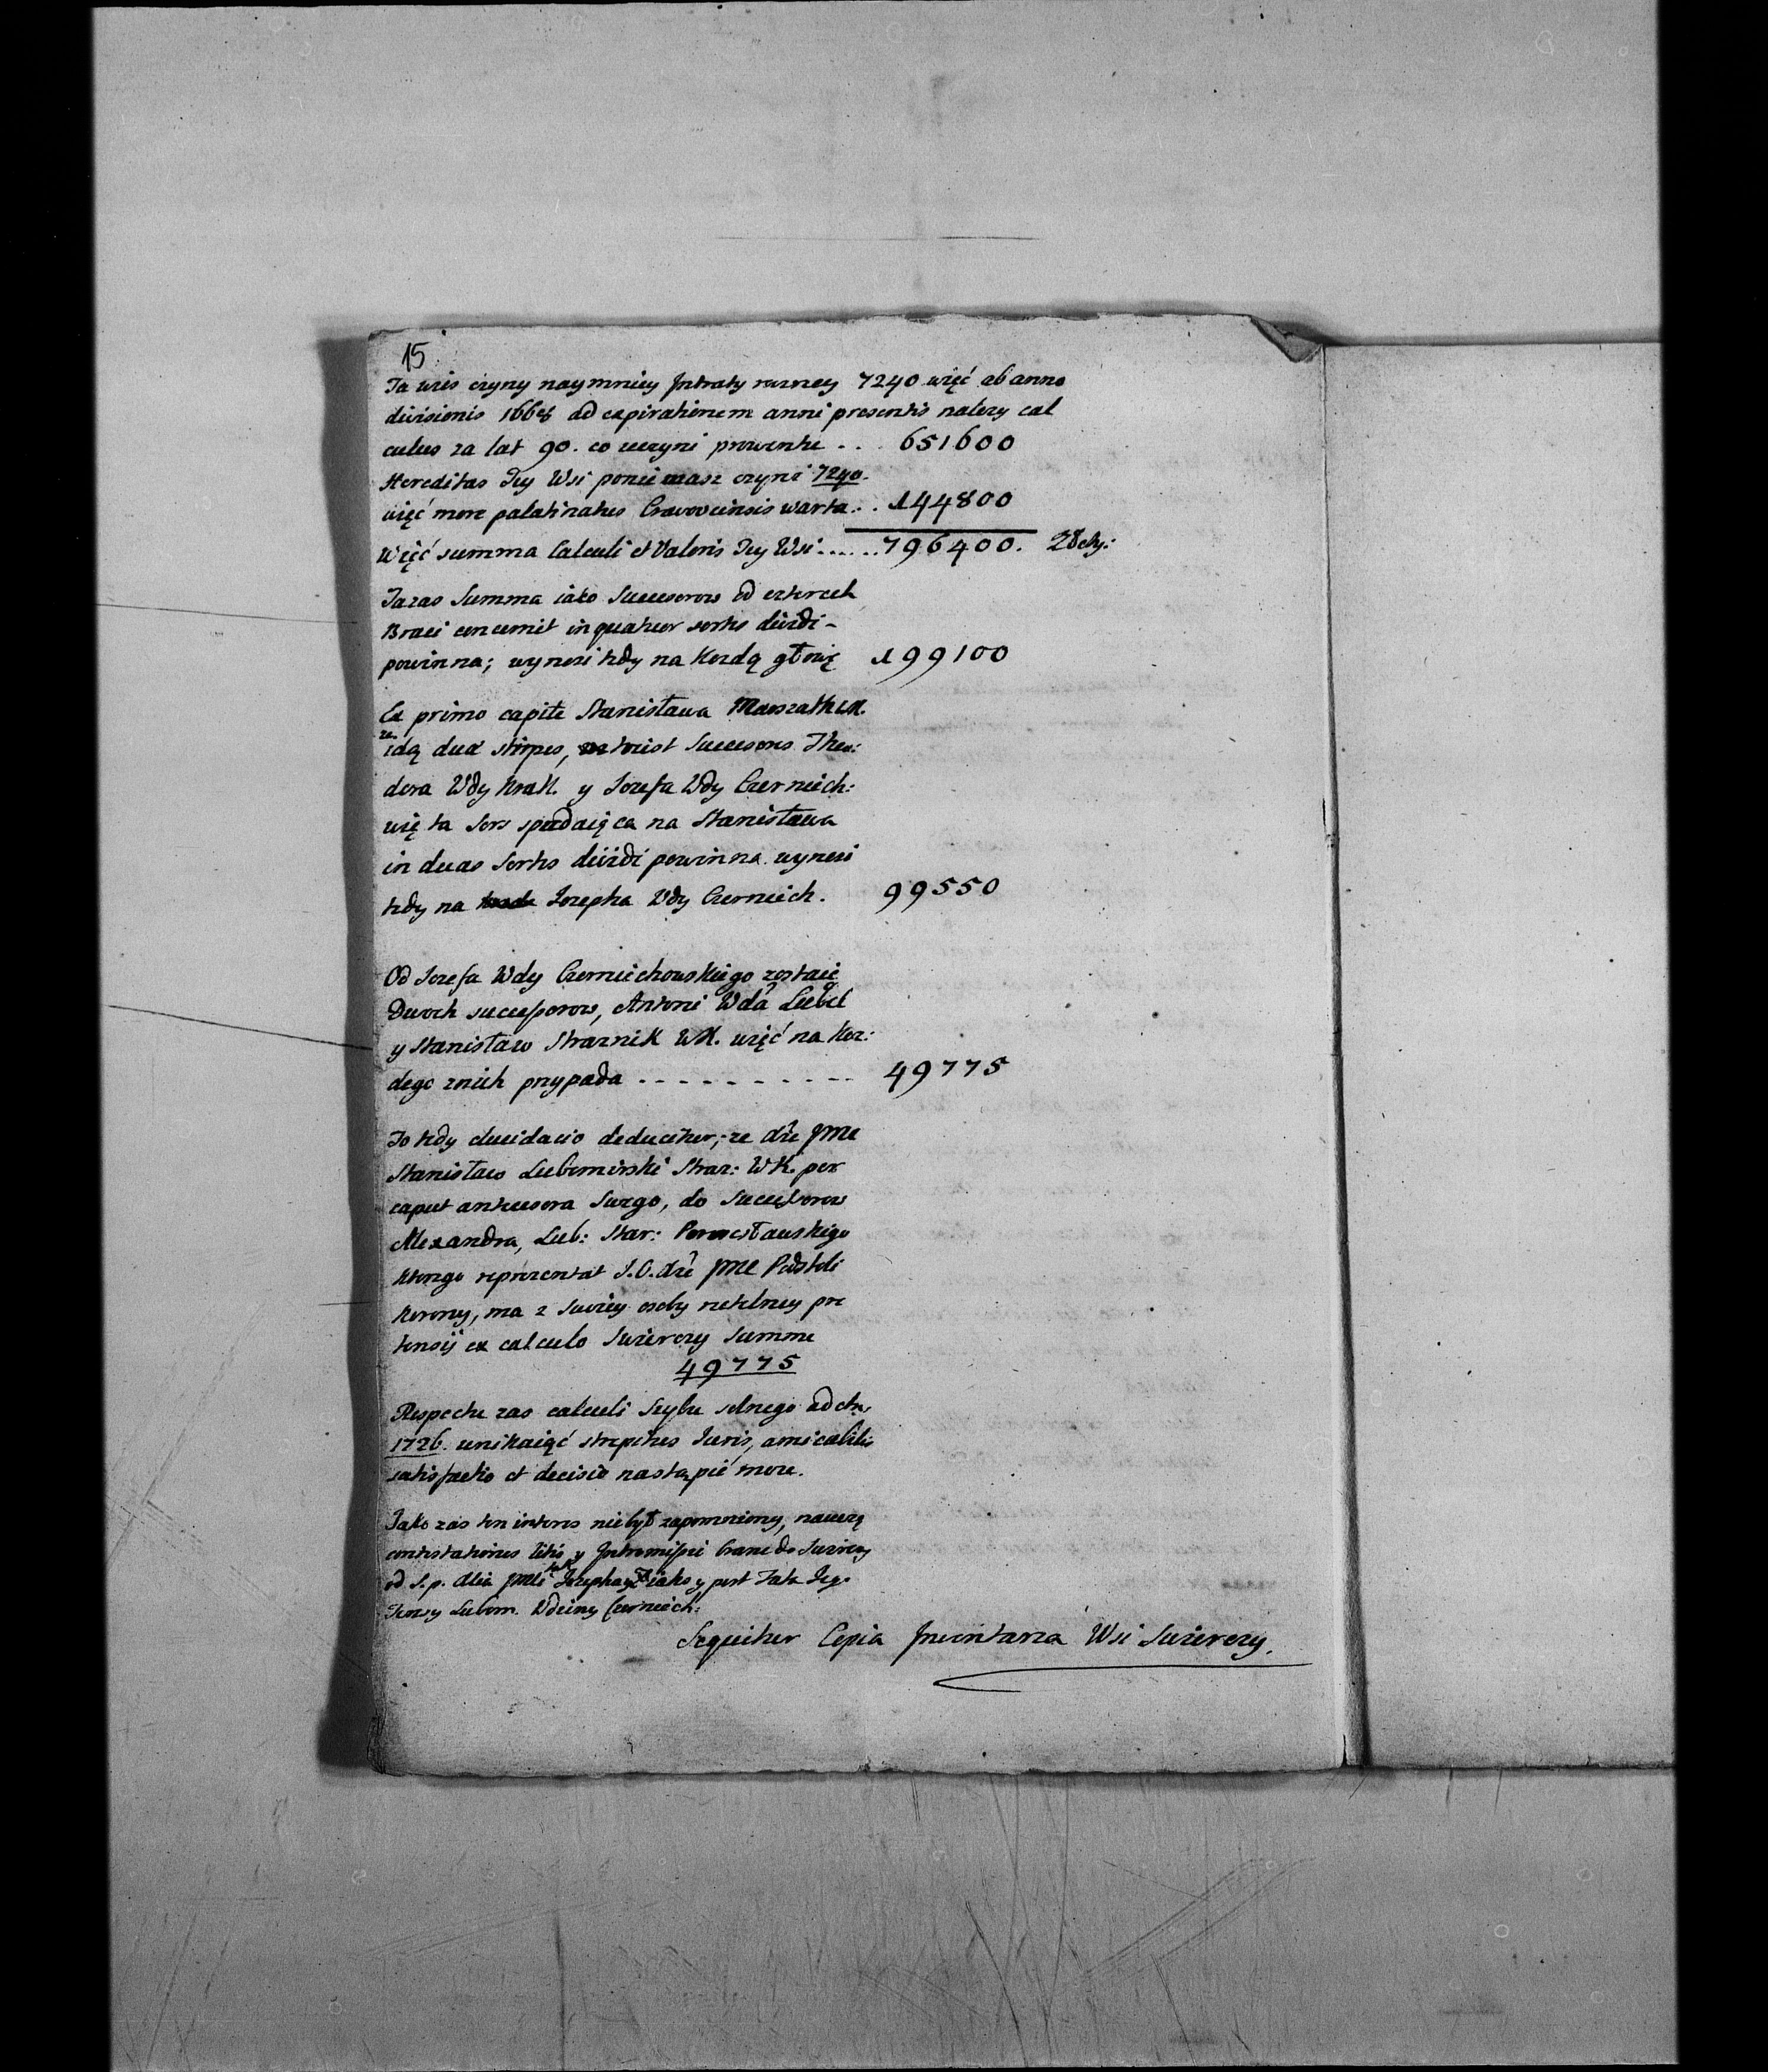 15
Ta wies czyny naymniey Jntraty roczney 7240 więć ab anno
divisionis 1668 ad expirationem anni presentis nalezy cal
culus za lat 90. co uczyni prowentu . . . 651600
Hereditas Tey Wsi poniewasz czyni 7240.
więć more palatinatus Cracoviensis warta . . . 144800
Więć summa Calculi et Valoris Tey Wsi . . . . . . 796400. Złoty:
Ta zas Summa iako Successorow od czterech
Braci concernit in quatuor sortes dividi -
powinna; wynosi tedy na Kozdą głowę 199100
Ex primo capite Stanisława Marszałk WK.
idą duæ stirpes, to iest Successores Theo:
dora Wdy Krak. y Jozefa Wdy Czerniech:
wię ta sors spadaiąca na Stanisława
in duas Sortes dividi powinna wynosi
tedy na Jozepha Wdy Czerniech. 99550
Od Jozefa Wdy Czerniechowskiego zostaie
Dwoch successorow, Antoni Wda Lubel
y Stanisław Straznik WK. więć na Koz:
dego znich przypada - - - - - - - - - - 49775
To tedy elucidacio deducitur, ze JME
Stanisław Lubomirski Straz: WK. per
caput antecesora Swego, do Successorow
Alexandra, Lub: Star: Peresławskiego
ktorego reprezentat J.O. JME Podstoli
Korony, ma z Swoiey osoby rzetelney pre
tensij ex calculo Swierczy Summe
49775
Respectu zas calculi Szybu solnego ad
1726. unikaiąć strepitus Juris, amicabilis
satisfactio et decisio nastąpić moze.
Jako zas ten interes niebył zapomniony, naucza
contestationes litis y Jntromissie brane do Swierczy
od S.p. JMci Jozepha iako y post Fata Jego
Lubom. Wdziny Czerniech:
Sequitur Copia Jnwentarza Wsi Swierczy.